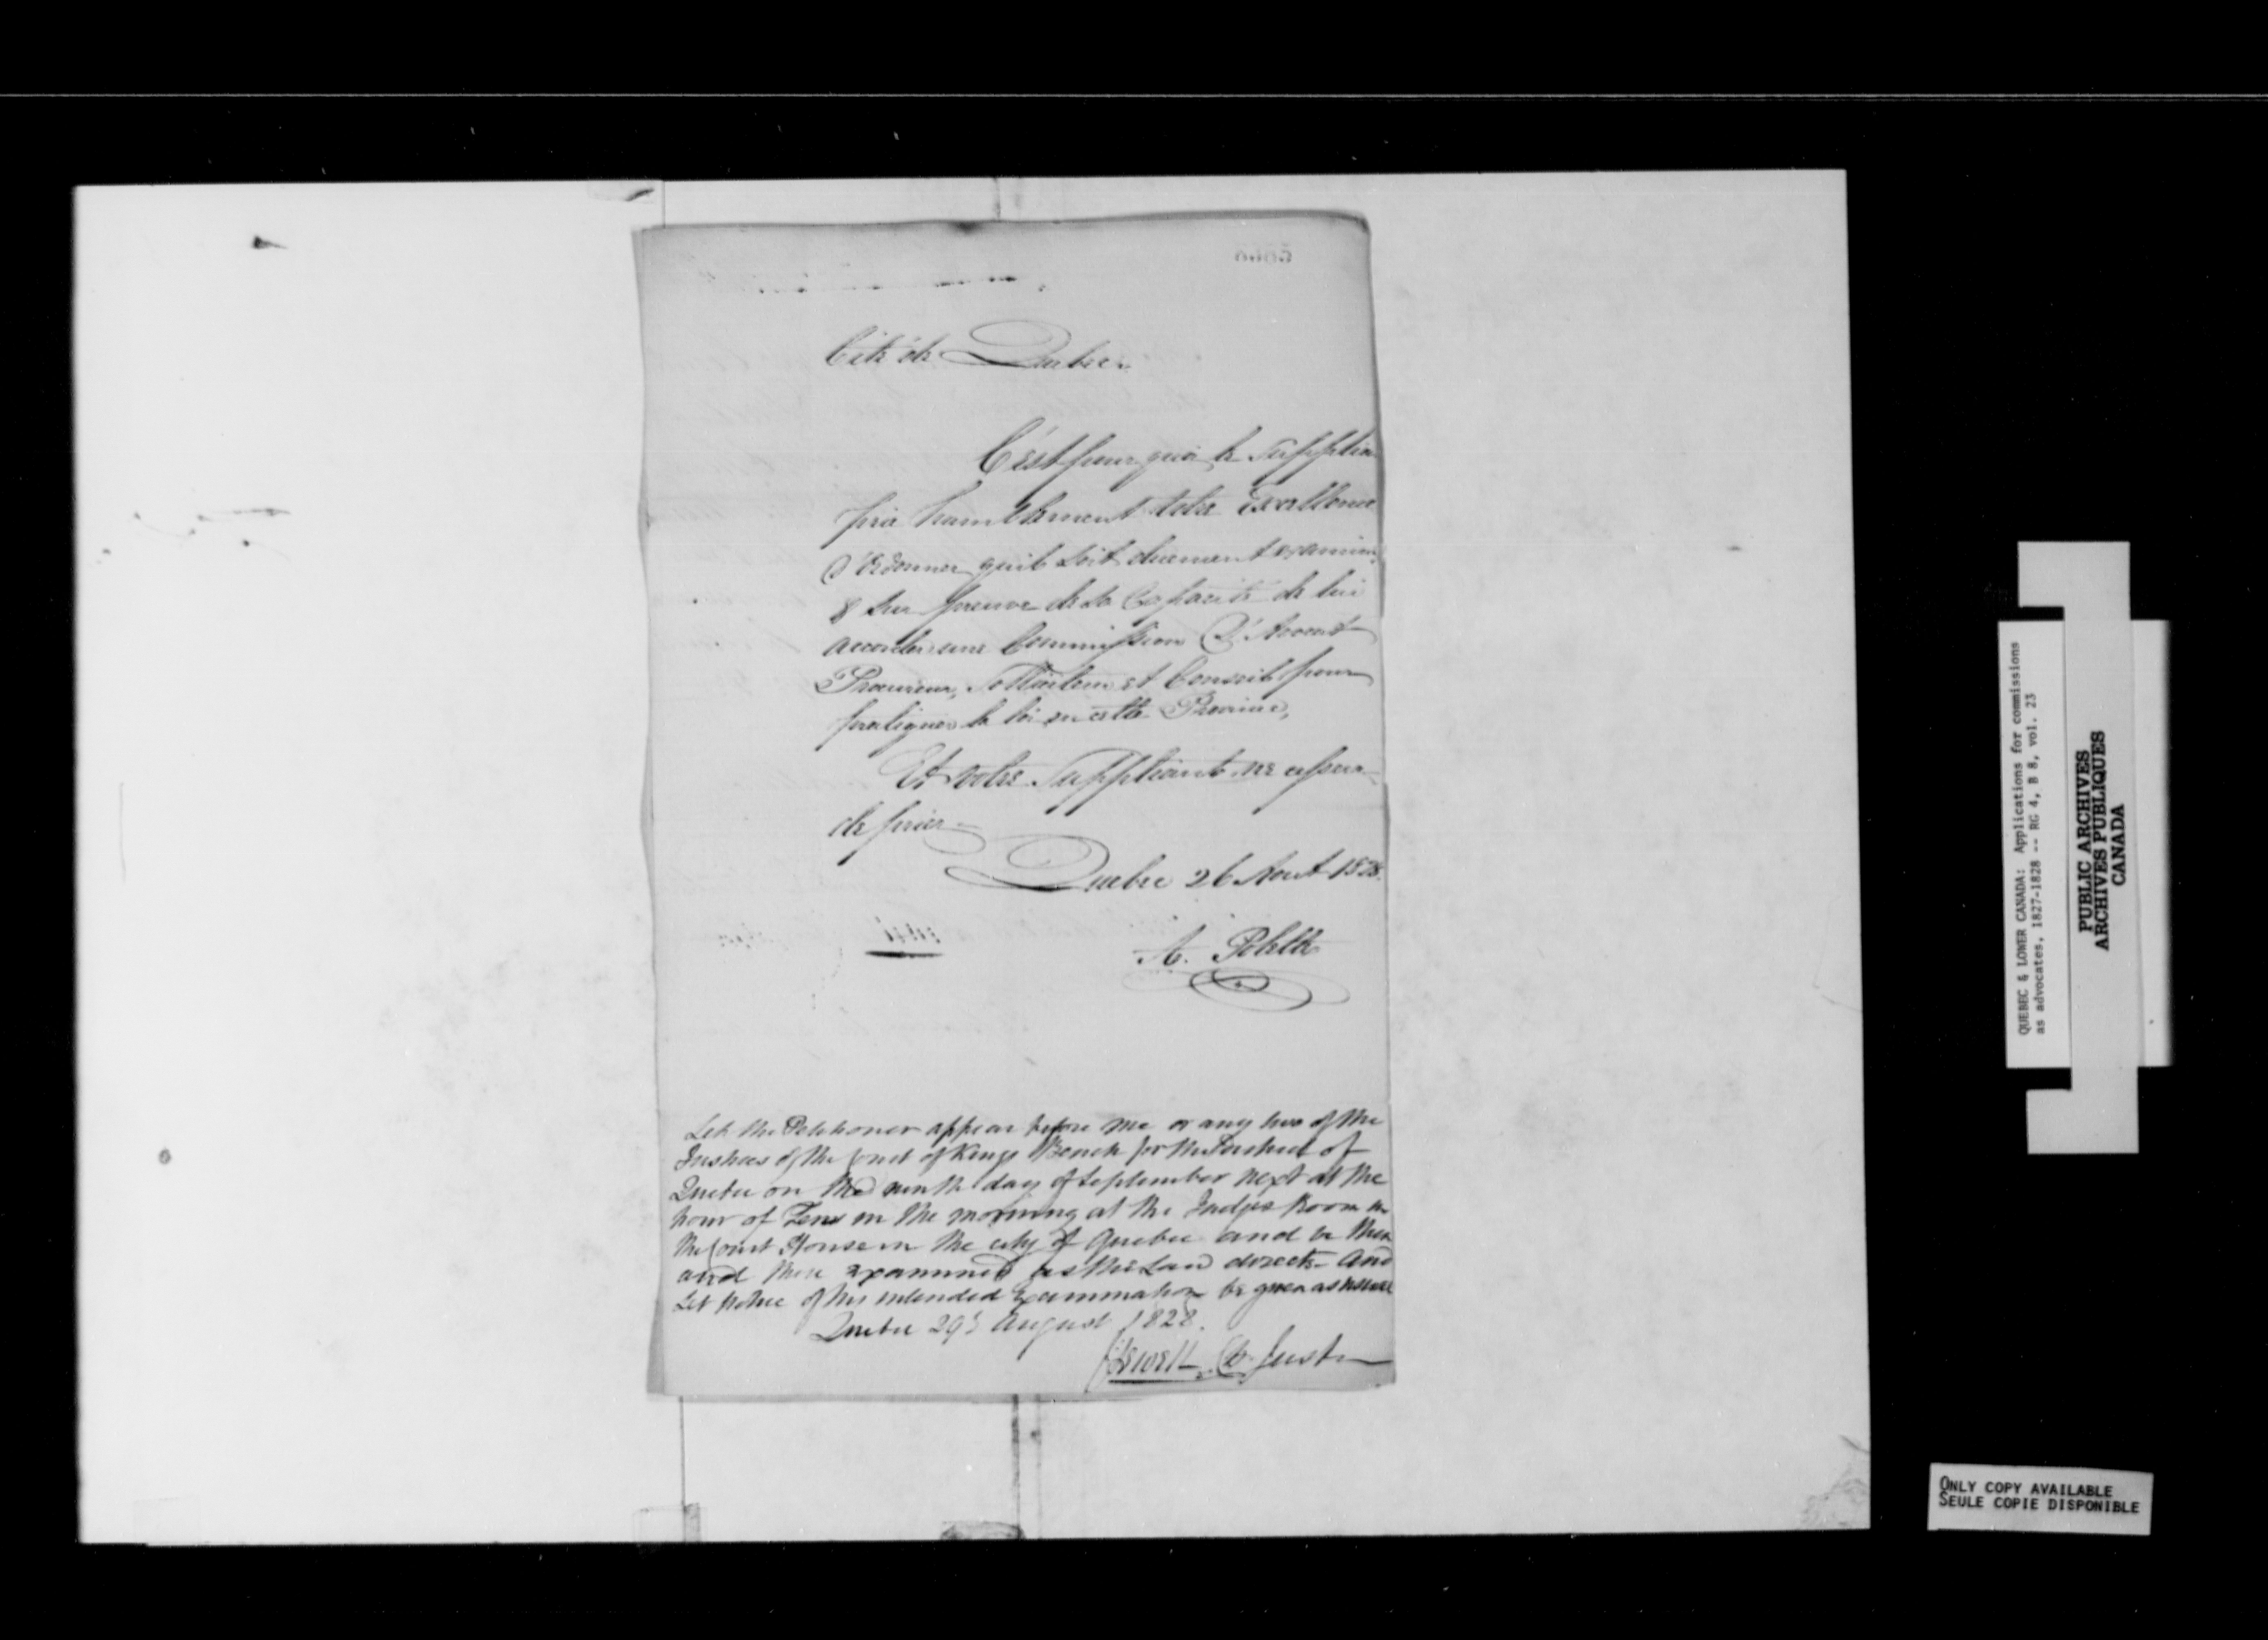 Cité de Quebec.
C'est pourquoi le Supplian
prie humblement Votre Excellence
d'ordonner qu'il soit duement examiné,
& sur preuve de sa Capacité de lui
accorder une Commission d'Avocat
Procureur, Solliciteur et Conseil pour
pratiquer la loi en cette Province,
Et votre Suppliant ne cessera
de prier—
Quebec 26 Aout 1828.
A. Polette
Let the Petitioner appear before me or any two of the
Justices of the Court of Kings Bench for the District of
Quebec on the ninth day of September next at the
hour of Ten in the morning at the Judges Room in
the Court House in the city of Quebec and be then
and there examined as the Law directs— And
Let notice of his intended Examination be given as usual
Quebec 29th August 1828.
J Sewell Ch. Just
QUEBEC & LOWER CANADA: Applications for commissions
as advocates, 1827-1828 -- RG 4, B 8, vol. 23
PUBLIC ARCHIVES
ARCHIVES PUBLIQUES
CANADA
ONLY COPY AVAILABLE
SEULE COPIE DISPONIBLE